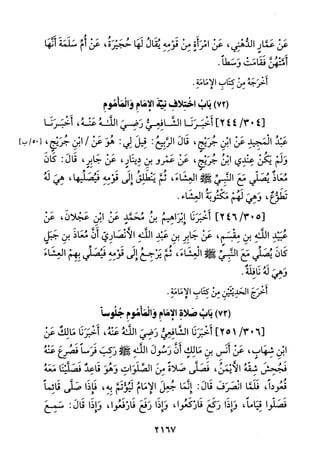 عَنْ عَمَّارٍ الدُّهْنِي، عَنِ امْرَأَةٍ مِنْ قَوْمِهِ يُقَالُ لَهَا حُجَيْرَةُ، عَنْ أُمِّ سَلَمَةَ أَنَّهَا
أَمَّتْهُنَّ فَقَامَتْ وَسَطاً.
أَخْرَجَهُ مِنْ كِتَابِ الإِمَامَةِ.
(٧٢) بَابُ اخْتِلَافِ نِيَّةِ الإِمَامِ وَالْمَأْمُومِ
[٢٤٤/٣٠٤] أَخْبَرَنَا الشَّافِعِيُّ رَضِيَ اللَّهُ عَنْهُ، أَخْبَرَنَا
عَبْدُ الْمَجِيدِ عَنِ ابْنِ جُرَيْجٍ، قَالَ الرَّبِيعُ: قِيلَ لِي: هُوَ عَنْ / ابْنِ جُرَيْجٍ، [٥٠/ب]
وَلَمْ يَكُنْ عِنْدِي ابْنُ جُرَيْجٍ، عَنْ عَمْرِو بنِ دِينَارٍ، عَنْ جَابِرٍ، قَالَ: كَانَ
مُعَاذٌ يُصَلِّي مَعَ النَّبِيِّ ﷺ الْعِشَاءَ، ثُمَّ يَنْطَلِقُ إِلَى قَوْمِهِ فَيُصَلِّيهَا، هِيَ لَهُ
تَطَوُّعٌ، وَهِيَ لَهُمْ مَكْتُوبَةُ الْعِشَاءِ.
[٢٤٦/٣٠٥] أَخْبَرَنَا إِبْرَاهِيمُ بنُ مُحَمَّدٍ عَنِ ابْنِ عَجْلَانَ، عَنْ
عُبَيْدِ اللَّهِ بنِ مِقْسَمٍ، عَنْ جَابِرِ بنِ عَبْدِ اللَّهِ الأَنْصَارِيِّ أَنَّ مُعَاذَ بنَ جَبَلٍ
كَانَ يُصَلِّي مَعَ النَّبِيِّ ﷺ الْعِشَاءَ، ثُمَّ يَرْجِعُ إِلَى قَوْمِهِ فَيُصَلِّي بِهِمُ الْعِشَاءَ
وَهِيَ لَهُ نَافِلَةٌ.
أَخْرَجَ الْحَدِيثَيْنِ مِنْ كِتَابِ الإِمَامَةِ.
(٧٣) بَابُ صَلَاةِ الإِمَامِ وَالْمَأْمُومِ جُلُوساً
[٢٥١/٣٠٦] أَخْبَرَنَا الشَّافِعِيُّ رَضِيَ اللَّهُ عَنْهُ، أَخْبَرَنَا مَالِكٌ عَنِ
ابْنِ شِهَابٍ، عَنْ أَنَسِ بنِ مَالِكٍ أَنَّ رَسُولَ اللَّهِ ﷺ رَكِبَ فَرَساً فَصُرِعَ عَنْهُ
فَجُحِشَ شِقُّهُ الأَيْمَنُ، فَصَلَّى صَلَاةً مِنَ الصَّلَوَاتِ وَهُوَ قَاعِدٌ فَصَلَّيْنَا مَعَهُ
قُعُوداً، فَلَمَّا انْصَرَفَ قَالَ: إِنَّمَا جُعِلَ الإِمَامُ لِيُؤْتَمَّ بِهِ، فَإِذَا صَلَّى قَائِماً
فَصَلُّوا قِيَاماً، وَإِذَا رَكَعَ فَارْكَعُوا، وَإِذَا رَفَعَ فَارْفَعُوا، وَإِذَا قَالَ: سَمِعَ
٢١٦٧